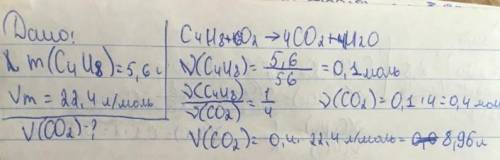 Дано:
m(C₄H₈)=5,6 г
Vm = 22,4 л/моль
V(CO₂)-?
C₄H₈+6O₂ → 4CO₂+4H₂O
ν(C₄H₈)= 5,6/56 = 0,1 моль
ν(C₄H₈)/ν(CO₂) = 1/4 ν(CO₂)=0,1·4=0,4 мол
V(CO₂)= 0,4· 22,4 л/моль = 8,96 л